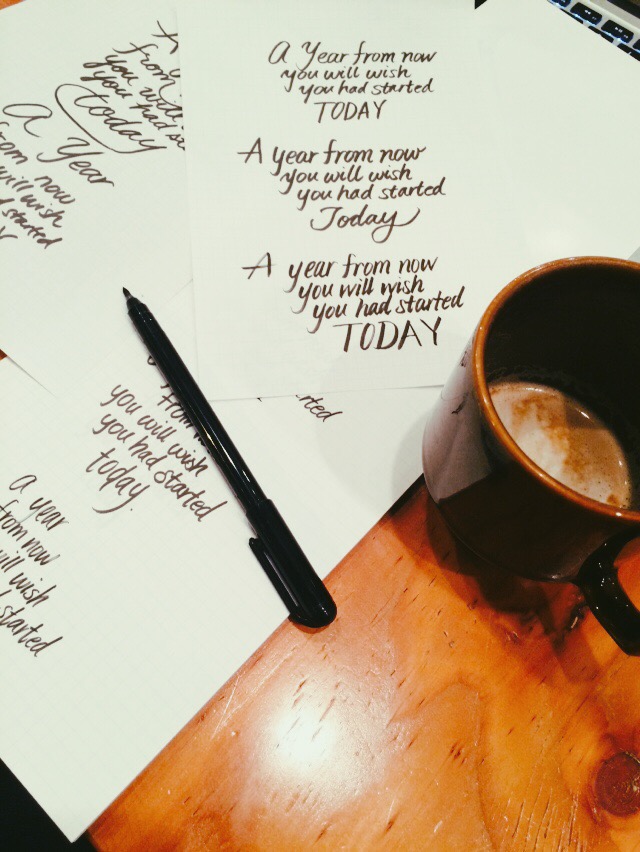 A Year from now
you will wish
you had started
TODAY
A year from now
you will wish
you had started
Today
A year from now
you will wish
you had started
TODAY
from
you will
you had
today
A Year
from now
will wish
started
rted
from
you will wish
you had started
today.
a year
from now
will wish
started